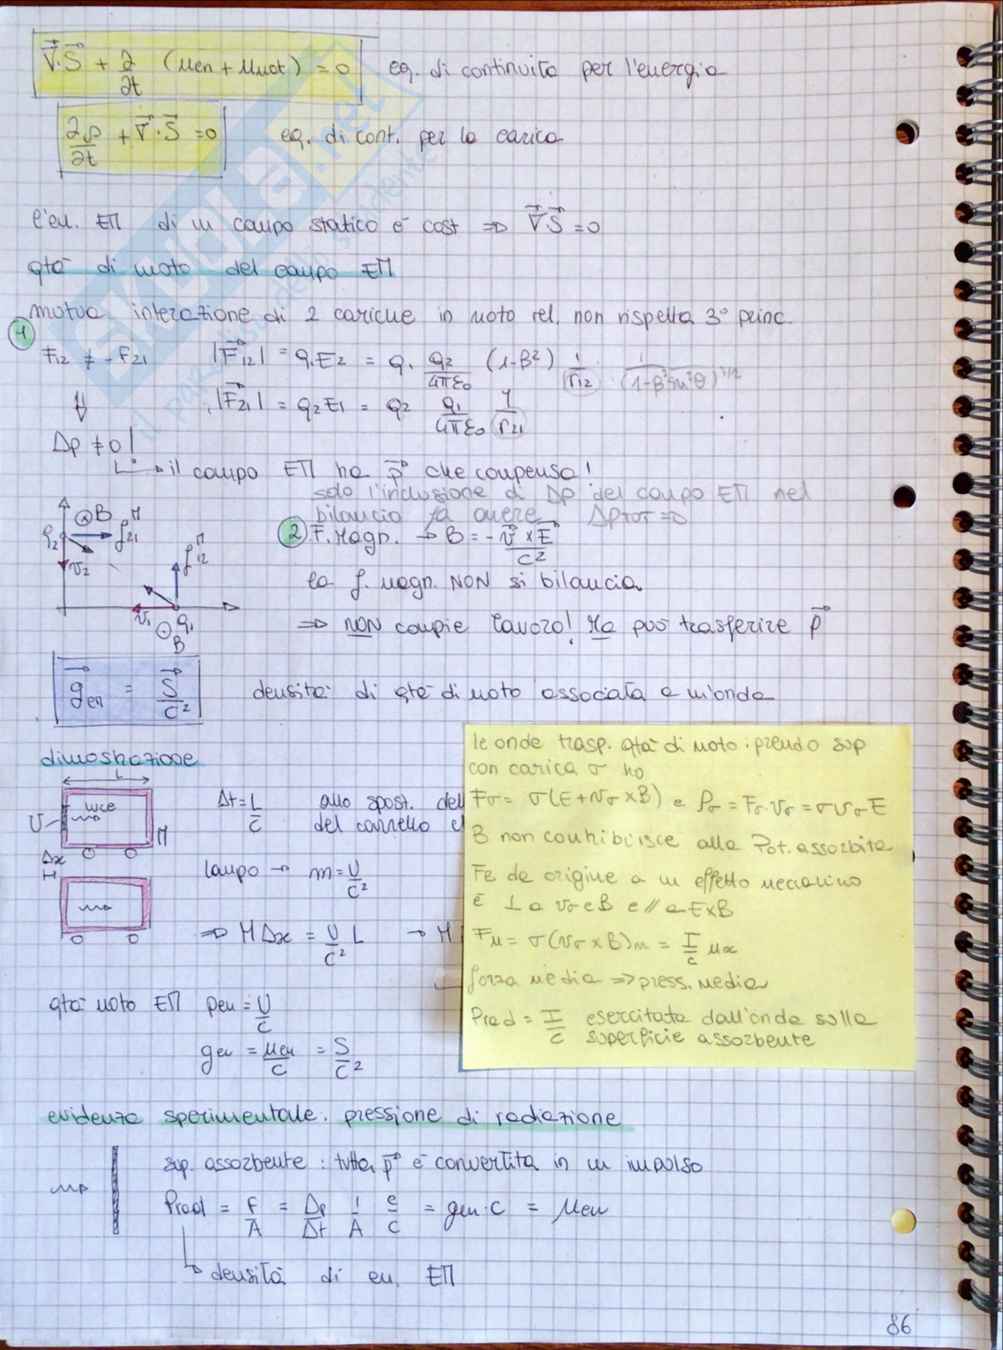 ∇·S + ∂/∂t (uem + umat) = 0 eq. di continuità per l'energia
∂ρ/∂t + ∇·S = 0 eq. di cont. per la carica
l'en. EM di un campo statico è cost ⇒ ∇S = 0
qtà di moto del campo EM
mutua interazione di 2 cariche in moto rel. non rispetta 3° princ.
1 F12 ≠ -F21 |F12| = q1E2 = q1 q2/4πε0 (1-β²) 1/r12 1/(1-β²sin²θ)^3/2
⇓ |F21| = q2E1 = q2 q1/4πε0 1/r21
Δp ≠ 0!
↳ il campo EM ha p che compensa!
solo l'inclusione di Δp del campo EM nel
bilancio fa avere ΔpTOT = 0
2 F. Magn. → B = - v × E/c²
la f. magn. NON si bilancia
⇒ NON compie lavoro! Ma può trasferire p
B f21 M q2 v2 f12 M v1 q1 B
gem = S/c² densità di qtà di moto associata a un'onda
dimostrazione
L
U M
Δt = L/c allo spost. del
del carrello
Δx
lampo → m = U/c²
⇒ MΔx = U/c² L → M
qtà moto EM pem = U/c
gem = uem/c = S/c²
le onde trasp. qtà di moto. prendo sup
con carica σ ho
Fσ = σ(E + vσ × B) e Pσ = Fσ·vσ = σvσE
B non contribuisce alla Pot. assorbita
FB da origine a un effetto meccanico
è ⊥ a vσ e B e // a E×B
FM = σ(vσ × B)m = I/c ux
forza media ⇒ press. media
Prad = I/c esercitata dall'onda sulla
superficie assorbente
evidenza sperimentale. pressione di radiazione
sup. assorbente : tutta p è convertita in un impulso
Prad = F/A = Δp/Δt 1/A c/c = gem·c = uem
↳ densità di en. EM
86
SKUOLA.net